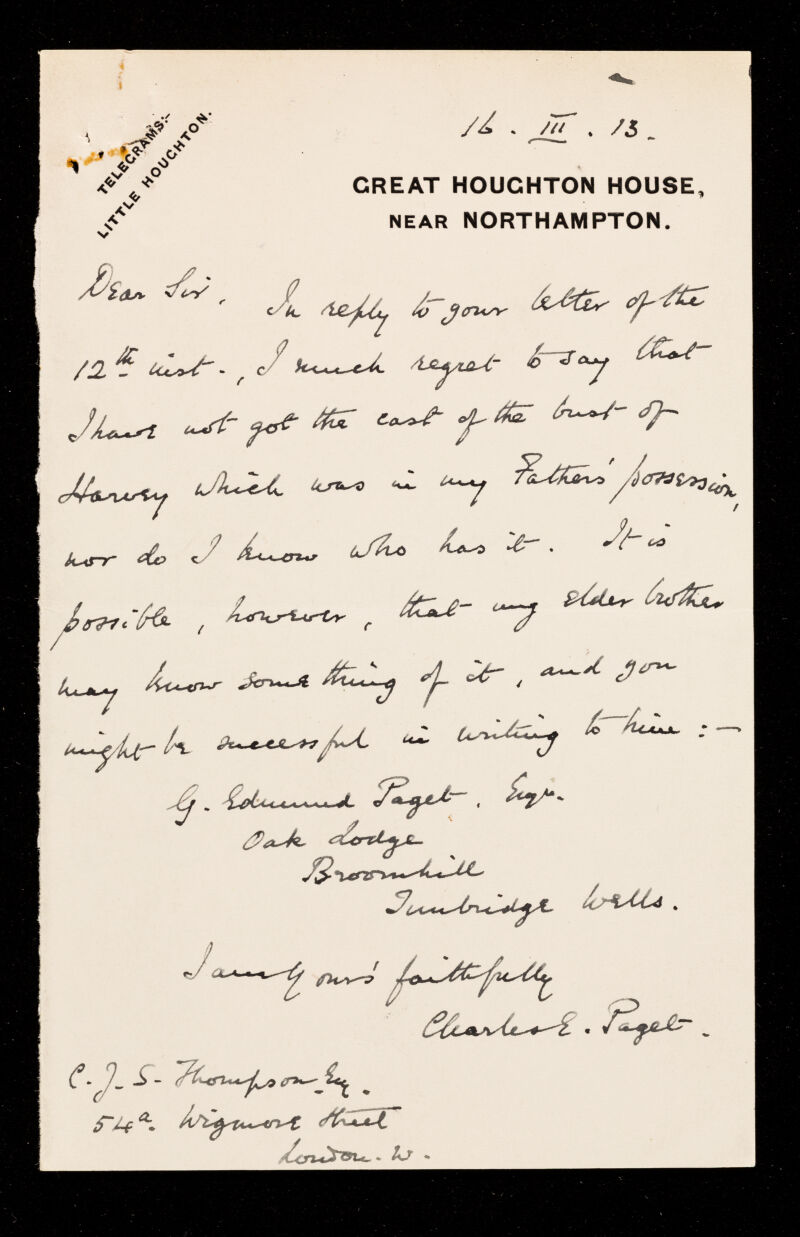 TELEGRAMS:-
LITTLE HOUGHTON.
16 . III . 13.
GREAT HOUGHTON HOUSE,
NEAR NORTHAMPTON.
Dear Sir, In reply to your letter of the
12th inst-., I much regret to say that
I have not got the cast of the bust of
Harvey which was in my Fathers' possession,
nor do I know who has it. It is
possible, however, that my elder brother
may know something of it, and you
might be successful in writing to him :—
G. Edmund Paget. Esqre.
Oak Lodge
Broomhill
Tunbridge Wells.
I am Your's faithfully
Charles E. Paget.
C. J. S. Thompson Esq.
54a. Wigmore Street
London. W.